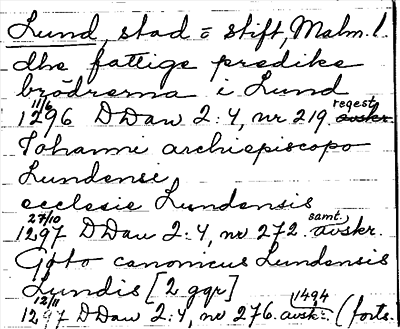 Lund, stad o stift, Malm. l.
dhe fattige predike
brödrema i Lund
11/6 1296 DDan 2:4, nr 219. regest avskr.
Johanni archiepiscopo
Lundensi
ecclesie Lundensis
27/10 1297 DDan 2:4, nr 272. samt. avskr.
Göto canonicus Lundensis
Lundis [2 ggr]
12/11 1297 DDan 2:4, nr 276. 1494 avskr. (forts.